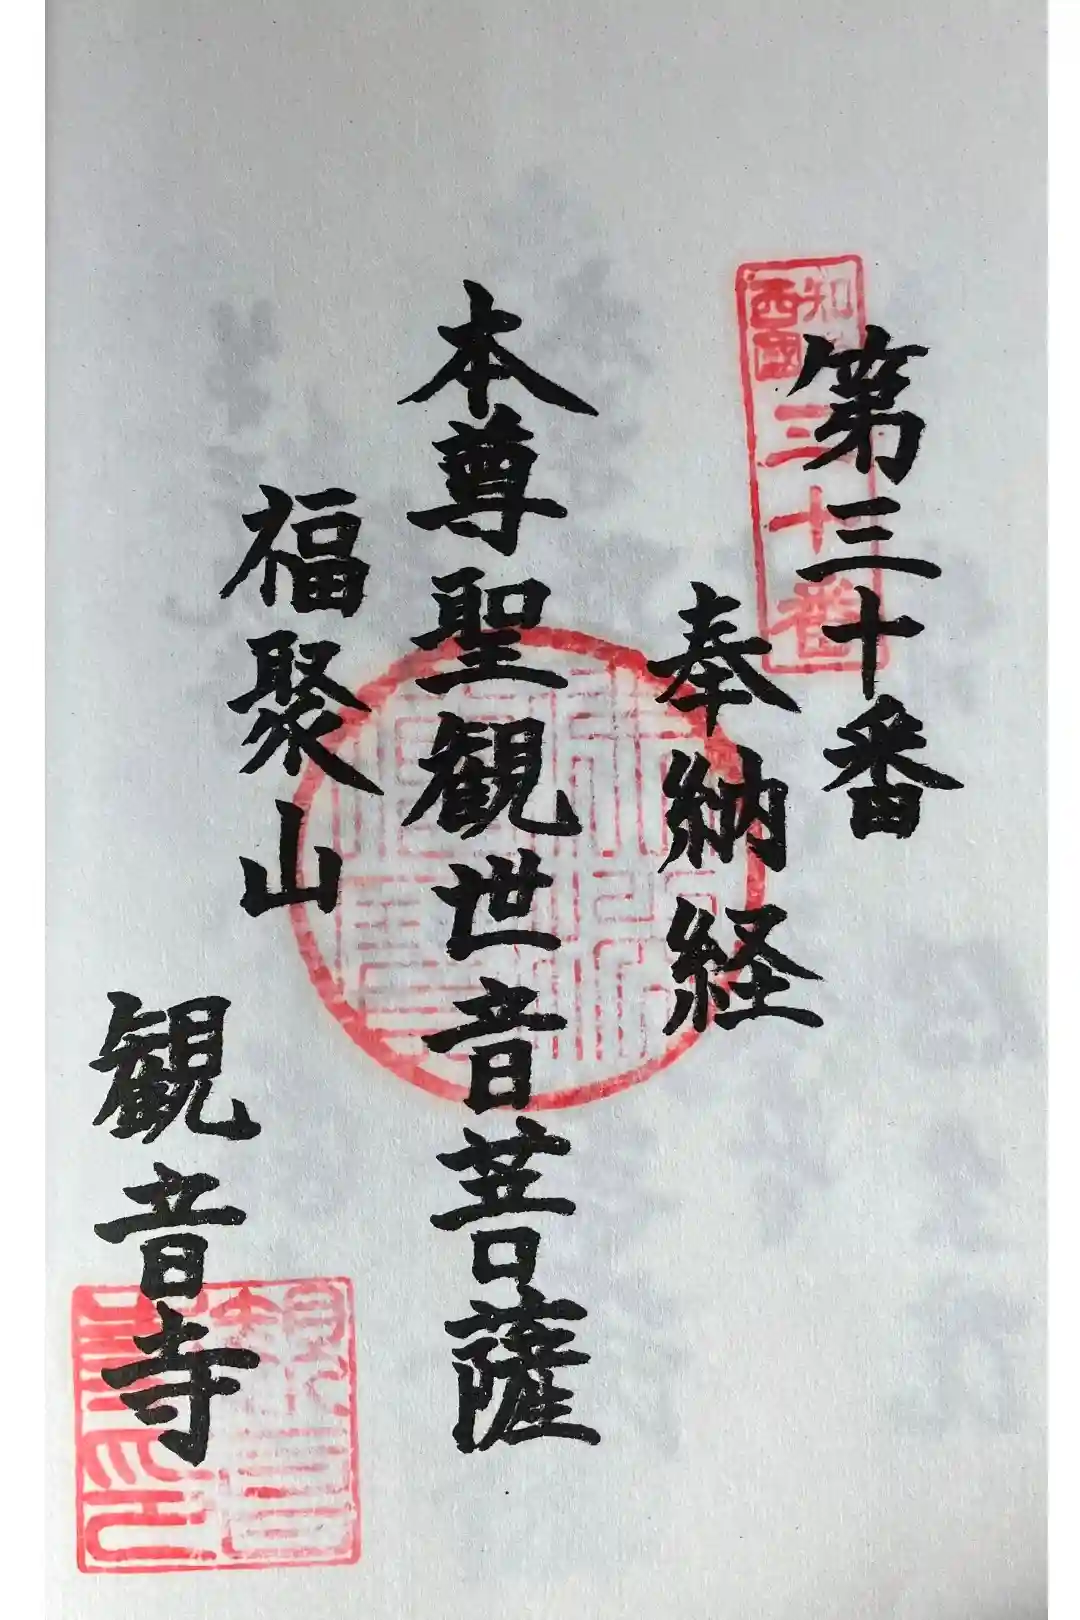 第三十番
西国
三十番
奉納経
本尊聖観世音菩薩
福聚山
観音寺